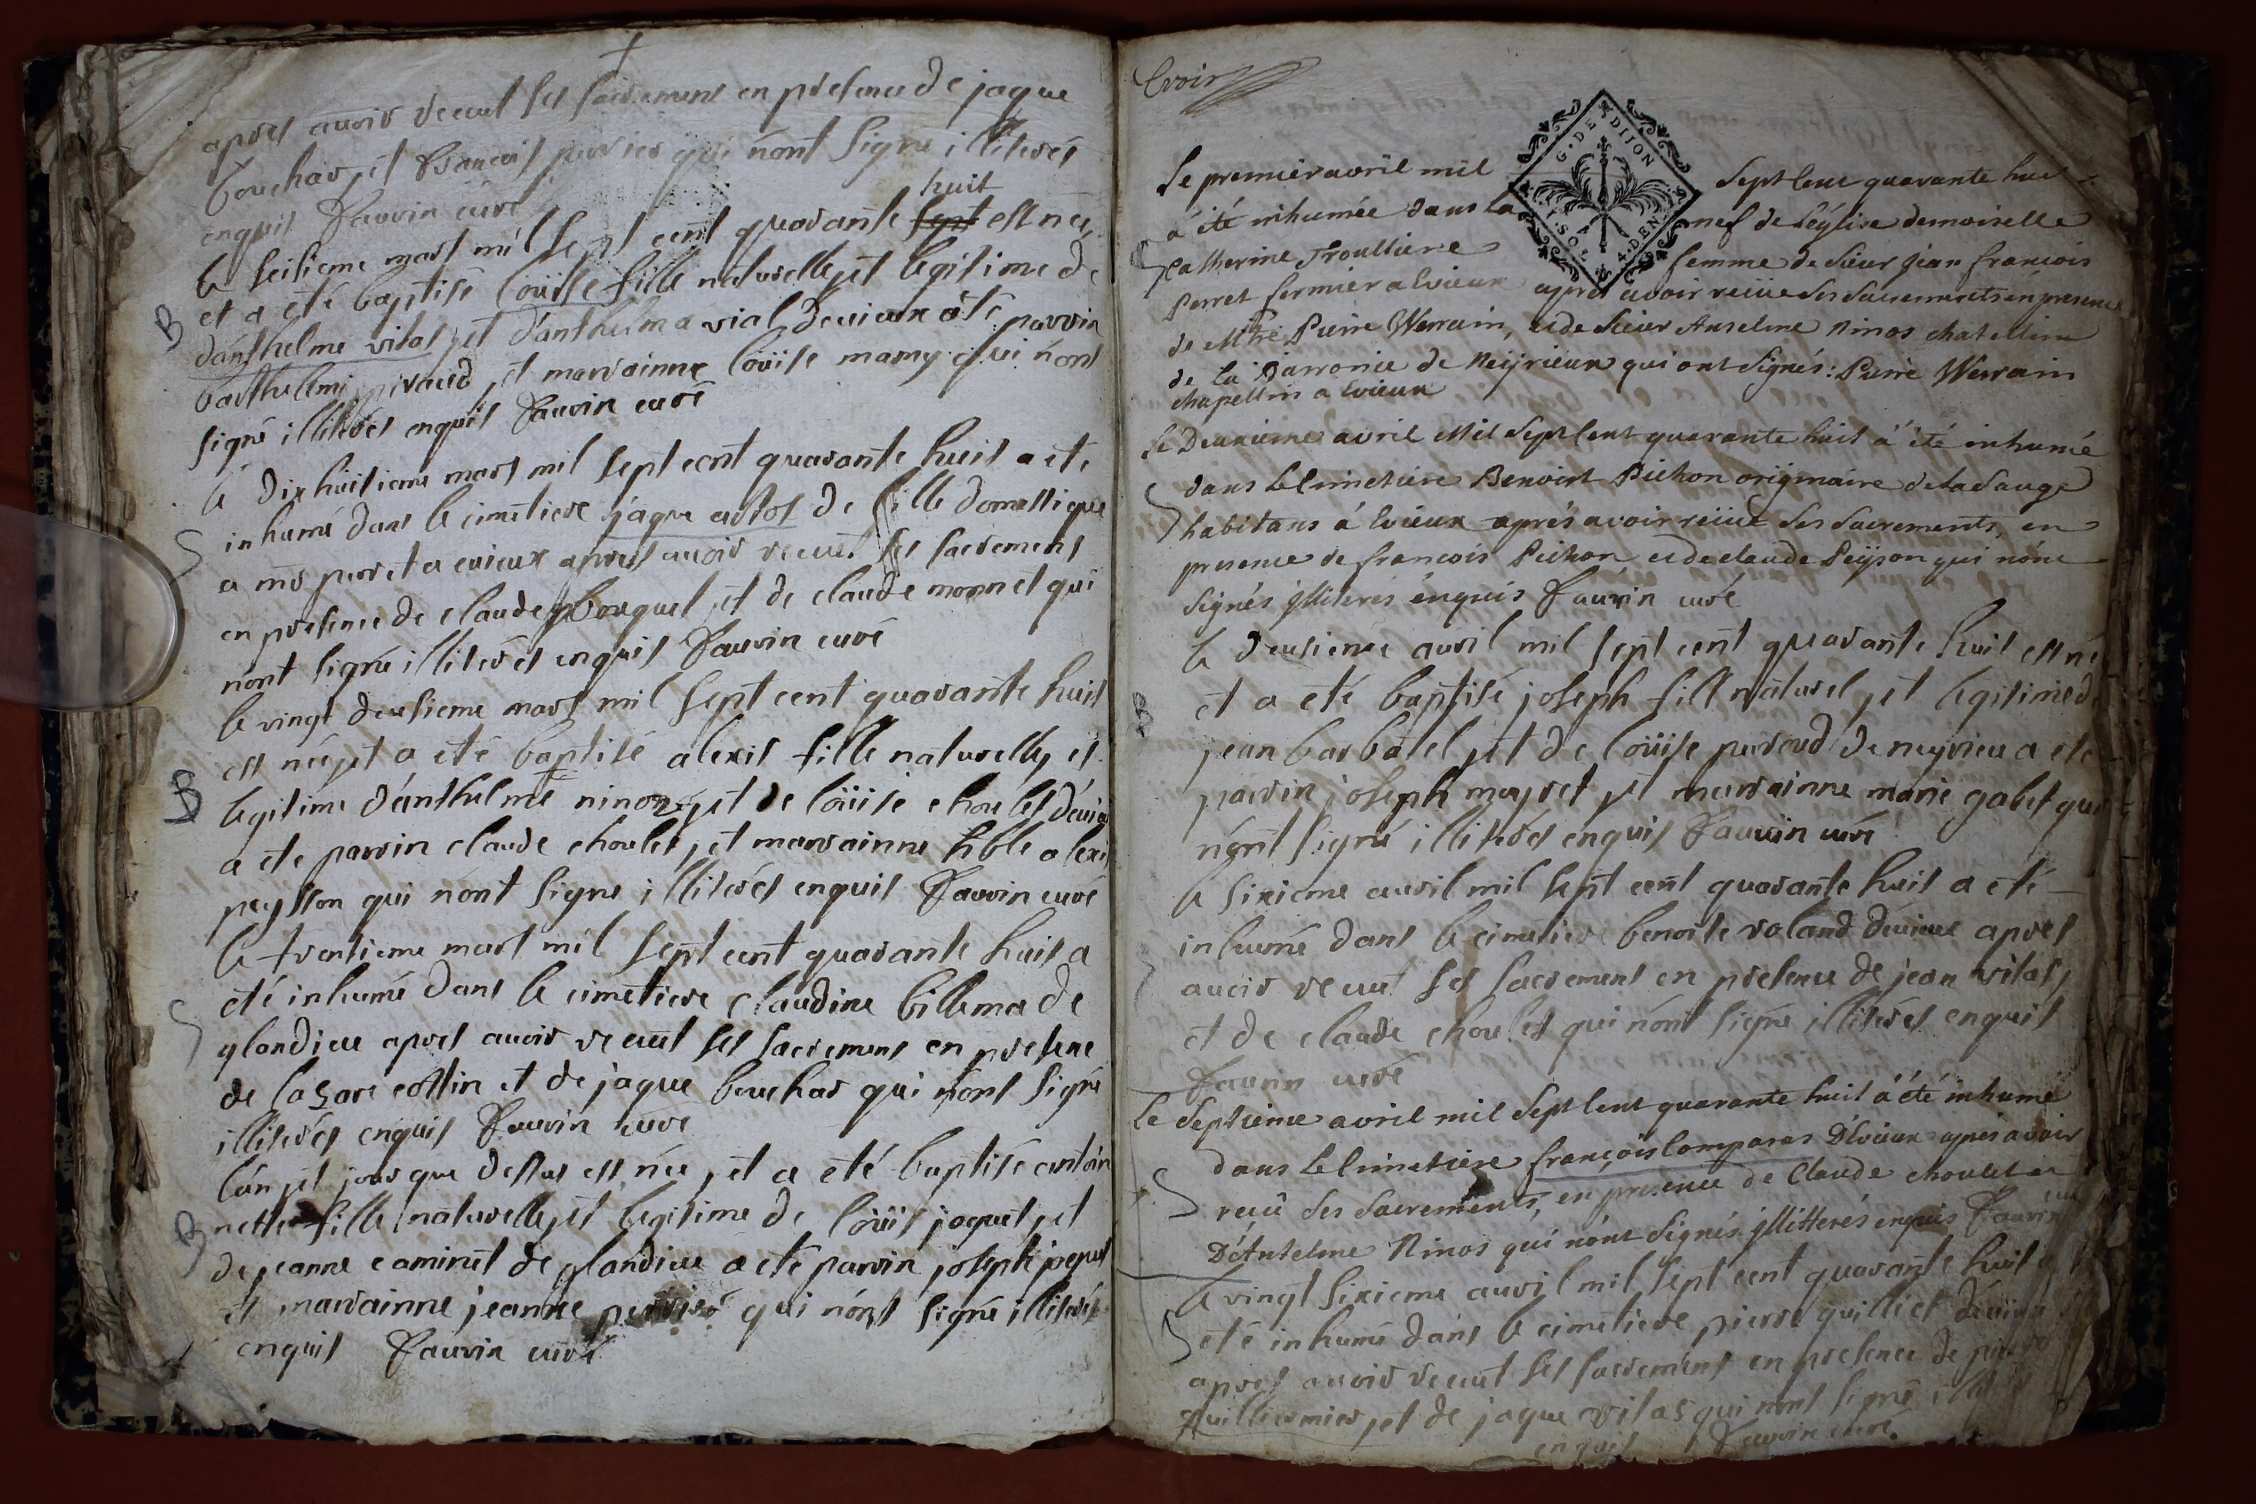 apres auoir recut ses sacremens en presence de jaque
bouchar, et francois perrier qui nont signé illiterés
enquis Fauvin curé
huit
le seisieme mars mil sept cent quarante sept est née
et a eté baptisé loüise fille naturelle, et legitime de
danthelme vital, et danthelma vial deuieux a eté parrin
barthellmi piraud, et marrainne loüise mamy qui nont
signé illiterés enquis Fauvin curé
B
le dix huitieme mars mil sept cent quarante huit a eté
inhumé dans le cimetiere jaque de domestique
a mr perret a euieux apres auoir recut ses sacremens
en presence de claude bouquet, et de claude monnet qui
nont signé illiterés enquis Fauvin curé
le vingt deusieme mars mil sept cent quarante huit
est née, et a eté baptisé alexis fille naturelle, et
B
legitime danthelme ninoz, et de loüise choulet deuieu
a eté parrin claude choulet, et marrainne hble alexis
peysson qui nont signe illiterés enquis Fauvin curé
le trentieme mars mil sept cent quarante huit a
eté inhumé dans le cimetiere claudine billema de
glandieu apres auoir recut ses sacremens en presence
de lasare collin et de jaque bouchar qui nont signé
illiterés enquis Fauvin curé
lan, et jour que dessus est née, et a eté baptisé antoin
B
nette fille naturelle, et legitime de loüis jaquet, et
de jeanne caminet de glandieu a eté parrin joseph jaquet
et marrainne jeanne qui nont signé illiterés
enquis Fauvin curé
Evoir
G. DE DIJON
SOLS 4 DEN
Le premier avril mil sept cent quarante huit
a été inhumée dans la nef de l'église demoiselle
Catherine Troulliere femme de sieur jean francois
Perret fermier a Evieux apres avoir reciie ses sacrements en presence
de Mtre Pierre Werrain, et de sieur Anselme Ninos chatellain
de la Barronie de Neyrieux qui ont signés: Pierre Werrain
chapellin a Evieux
le Deuxieme avril Mil sept cent quarante huit a été inhumé
dans le Cimetiere Benoist Pichon originaire de la Sauge
habitans á Evieux aprés avoir reciie ses sacrements, en
presence de francois Pichon et de claude Peÿson qui nônt
signés jlliterés énquis Fauvin curé
le deusieme auril mil sept cent quarante huit est né
B
et a eté baptisé joseph fils naturel, et legitime de
jean barbatel, et de loüise peroud de neyrieu a eté
parrin joseph mayret et marrainne marie gabet qui
nont signé illiterés enquis Fauvin curé
le sixieme auril mil sept cent quarante huit a eté
inhumé dans le cimetiere benoite roland deuieux apres
auoir recut ses sacremens en presence de jean vital,
et de claude choulet qui nont signé illiterés enquis
Fauvin curé
Le septieme avril mil sept cent quarante huit á été inhumé
dans le Cimetiere françois Comparas D'Evieux apres avoir
recû ses sacrements, en presence de Claude choulet et
D'Antelme Ninos qui nônt signés jllitterés enquis Fauvin curé
le vingt sixieme auril mil sept cent quarante huit a
eté inhumé dans le cimetiere pierre quilliet deuieux
apres auoir recut ses sacremens en presence de pierre
quillermier, et de jaque vitas qui nont signé illiterés
enquis Fauvin curé.